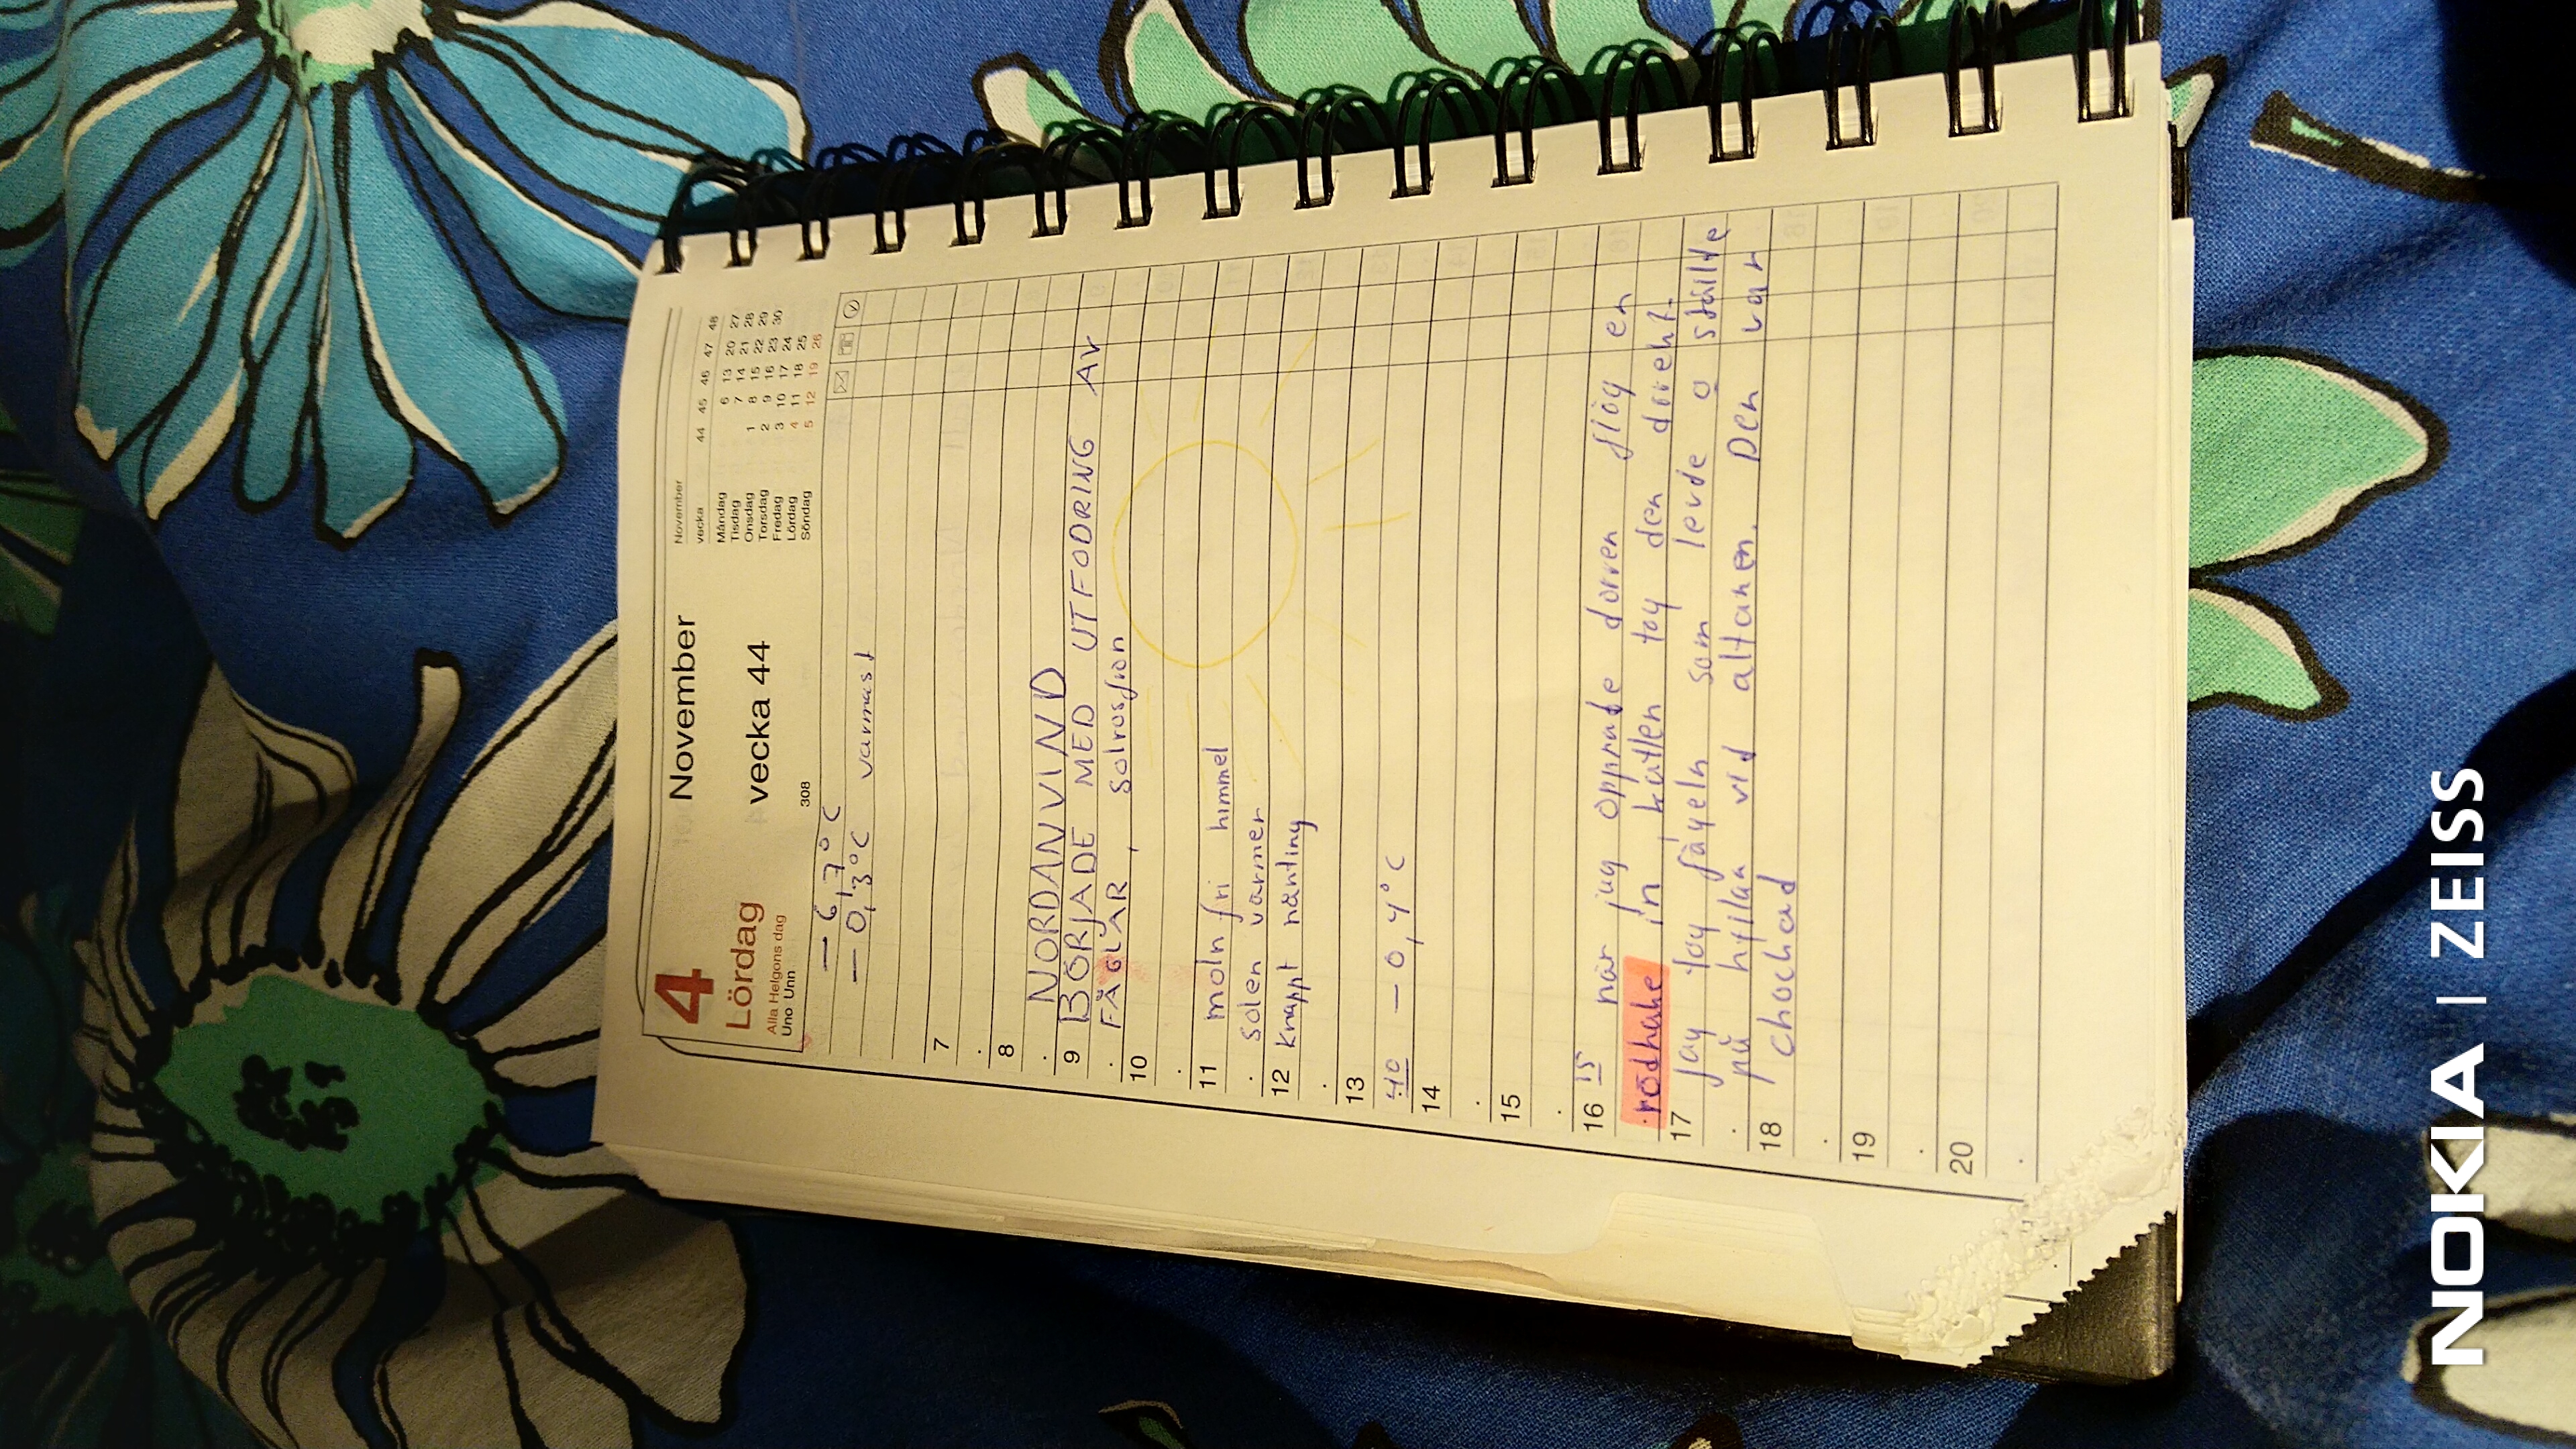 4 November
Lördag vecka 44
Alla Helgons dag
Uno Unn 308
November
vecka 44 45 46 47 48
Måndag 6 13 20 27
Tisdag 7 14 21 28
Onsdag 1 8 15 22 29
Torsdag 2 9 16 23 30
Fredag 3 10 17 24
Lördag 4 11 18 25
Söndag 5 12 19 26
— 6,7°C
— 0,3°C varmast
7
8
NORDANVIND
9 BÖRJADE MED UTFODRING AV
FÅGLAR, solrosfrön
10
11 moln fri himmel
solen värmer
12 knappt nånting
13
:40 — 0,4°C
14
15
16 15 när jag öppnade dörren flög en
rödhake in, katten tog den direkt.
17 jag tog fågeln som levde o ställde
på hyllan vid altanen. Den var
18 chockad
19
20
NOKIA | ZEISS